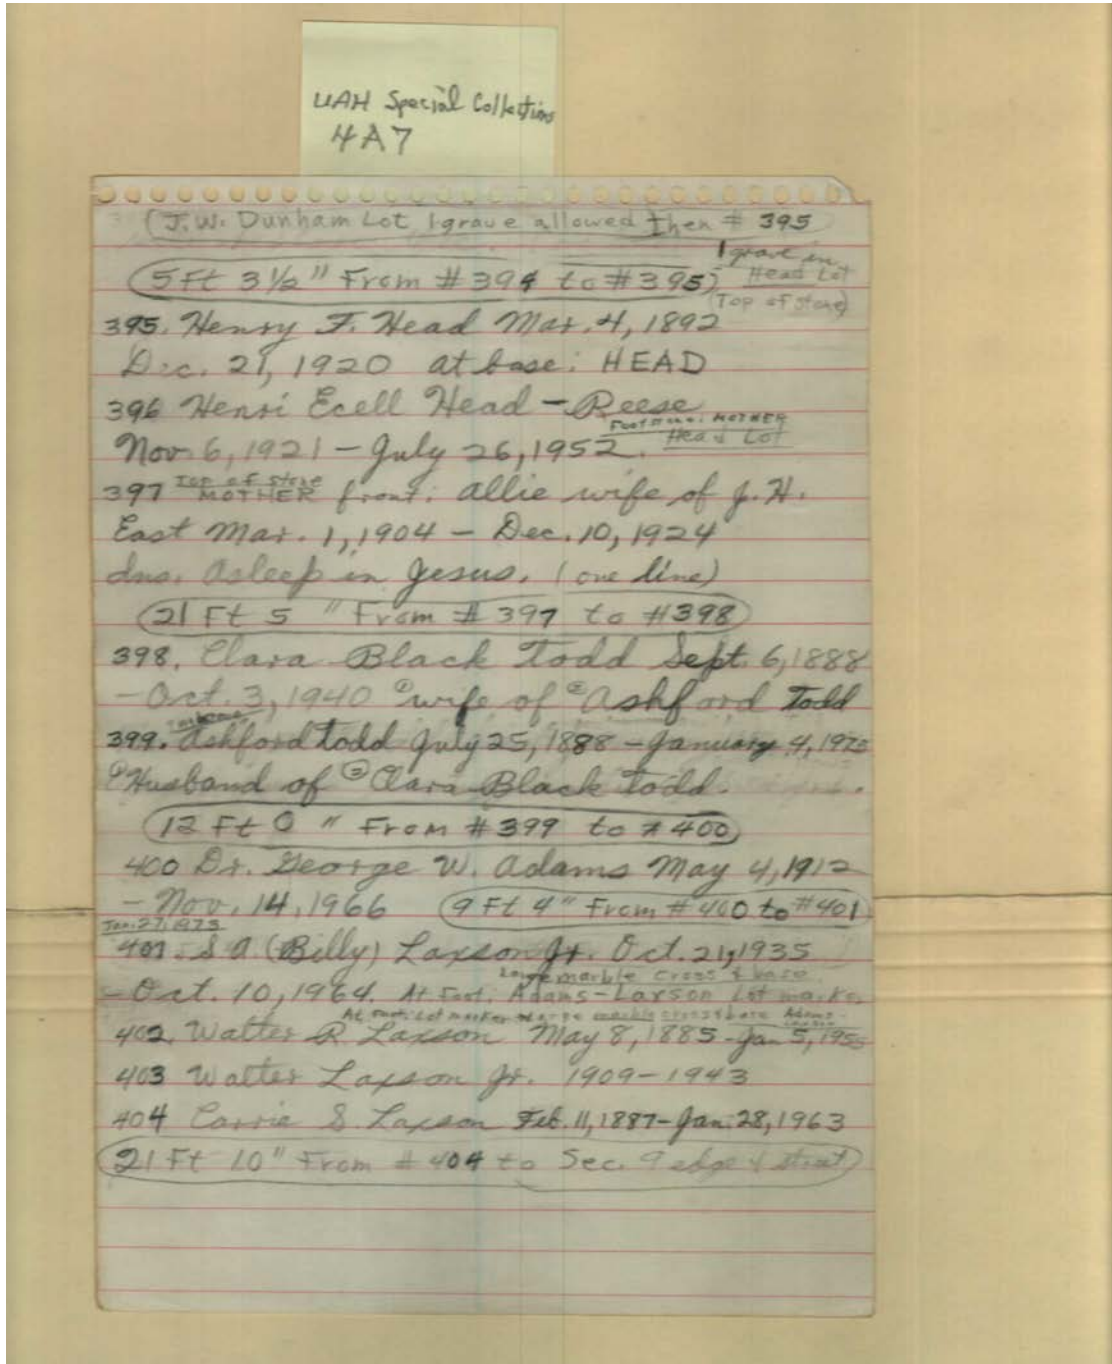 UAH Special Collections
4A7
(J.W. Dunham Lot 1 grave allowed then # 395
1 grave in
(5 Ft 3 1/2" From # 394 to # 395) Head Lot
(Top of stone)
395. Henry F. Head Mar. 4, 1892
Dec. 21, 1920 at base: HEAD
396 Henri Ecell Head - Reese
Footstone: MOTHER
Nov. 6, 1921 - July 26, 1952. Head Lot
Top of stone
397 MOTHER front: Allie wife of J. H.
East Mar. 1, 1904 - Dec. 10, 1924
dns. Asleep in Jesus. (one line)
(21 Ft 5 " From # 397 to # 398)
398. Clara Black Todd Sept. 6, 1888
- Oct. 3, 1940 ① wife of ② Ashford Todd
399. Ashford Todd July 25, 1888 - January 4, 1975
① Husband of ② Clara Black Todd.
(12 Ft 0 " From # 399 to # 400)
400 Dr. George W. Adams May 4, 1912
- Nov. 14, 1966 (9 Ft 4" From # 400 to # 401)
Jan. 27, 1973
401. S A (Billy) Laxson Jr. Oct. 21, 1935
Large marble cross & base
- Oct. 10, 1964. At Foot: Adams-Larson Lot marker
At foot: Lot marker large marble cross & base Adams-
402. Walter R Laxson May 8, 1885 - Jan 5, 1955
403 Walter Laxson Jr. 1909-1943
404 Carrie S. Laxson Feb. 11, 1887 - Jan. 28, 1963
(21 Ft 10" From # 404 to Sec. 9 edge & street)